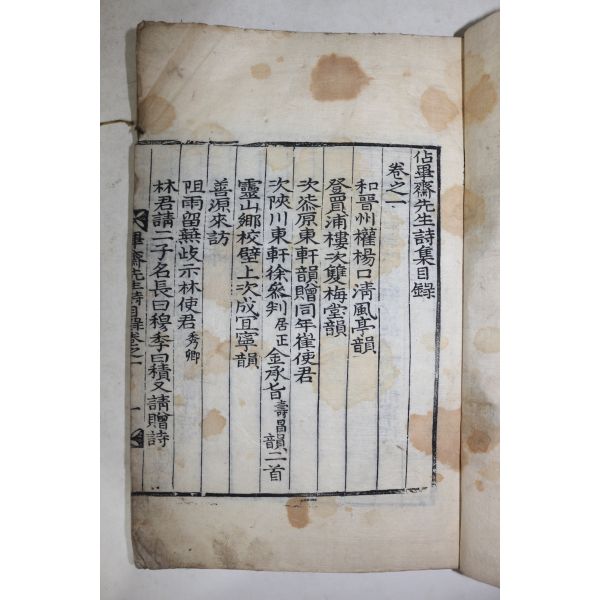 佔畢齋先生詩集目錄
卷之一
和晉州權楊口淸風亭韻
登買浦樓次雙梅堂韻
次漆原東軒韻贈同年崔使君
次陜川東軒徐參判居正金承旨壽昌韻二首
靈山鄕校壁上次成宜寧韻
善源來訪
阻雨留蕪歧示林使君秀卿
林君請二子名長曰穆季曰積又請贈詩
畢齋先生詩目錄卷之一 一